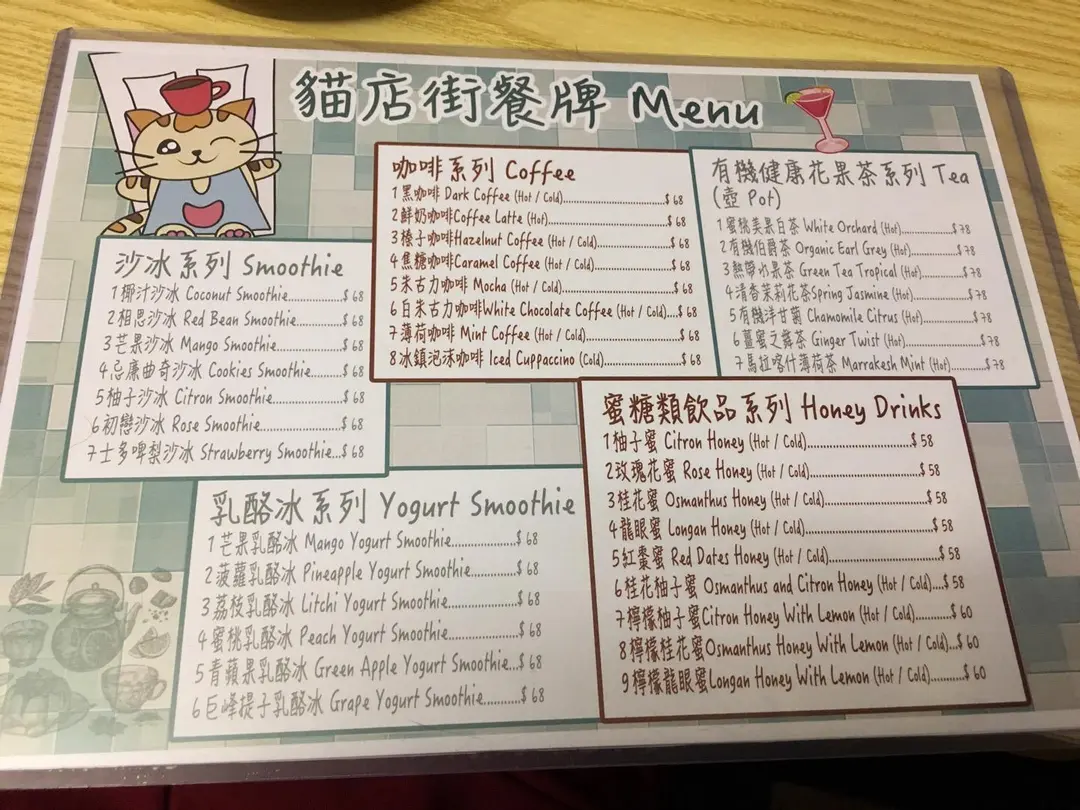 貓店街餐牌 Menu
咖啡系列 Coffee
1黑咖啡 Dark Coffee (Hot / Cold)....................$ 68
2鮮奶咖啡Coffee Latte (Hot)....................$ 68
3榛子咖啡Hazelnut Coffee (Hot / Cold)....................$ 68
4焦糖咖啡Caramel Coffee (Hot / Cold)....................$ 68
5朱古力咖啡 Mocha (Hot / Cold)....................$ 68
6白朱古力咖啡White Chocolate Coffee (Hot / Cold)....$ 68
7薄荷咖啡 Mint Coffee (Hot / Cold)....................$ 68
8冰鎮泡沫咖啡 Iced Cuppaccino (Cold)....................$ 68
有機健康花果茶系列 Tea
(壺 Pot)
1蜜桃美果白茶 White Orchard (Hot)............$ 78
2有機伯爵茶 Organic Earl Grey (Hot)............$ 78
3熱帶水果茶 Green Tea Tropical (Hot)............$ 78
4清香茉莉花茶Spring Jasmine (Hot)............$ 78
5有機洋甘菊 Chamomile Citrus (Hot)............$ 78
6薑蜜之舞茶 Ginger Twist (Hot)............$ 78
7馬拉喀什薄荷茶 Marrakesh Mint (Hot)........$ 78
沙冰系列 Smoothie
1椰汁沙冰 Coconut Smoothie............$ 68
2相思沙冰 Red Bean Smoothie............$ 68
3芒果沙冰 Mango Smoothie............$ 68
4忌廉曲奇沙冰 Cookies Smoothie........$ 68
5柚子沙冰 Citron Smoothie............$ 68
6初戀沙冰 Rose Smoothie............$ 68
7士多啤梨沙冰 Strawberry Smoothie...$ 68
蜜糖類飲品系列 Honey Drinks
1柚子蜜 Citron Honey (Hot / Cold)....................$ 58
2玫瑰花蜜 Rose Honey (Hot / Cold)....................$ 58
3桂花蜜 Osmanthus Honey (Hot / Cold)....................$ 58
4龍眼蜜 Longan Honey (Hot / Cold)....................$ 58
5紅棗蜜 Red Dates Honey (Hot / Cold)....................$ 58
6桂花柚子蜜 Osmanthus and Citron Honey (Hot / Cold)....$ 58
7檸檬柚子蜜Citron Honey With Lemon (Hot / Cold)............$ 60
8檸檬桂花蜜Osmanthus Honey With Lemon (Hot / Cold)....$ 60
9檸檬龍眼蜜Longan Honey With Lemon (Hot / Cold)..........$ 60
乳酪冰系列 Yogurt Smoothie
1芒果乳酪冰 Mango Yogurt Smoothie................$ 68
2菠蘿乳酪冰 Pineapple Yogurt Smoothie............$ 68
3荔枝乳酪冰 Litchi Yogurt Smoothie................$ 68
4蜜桃乳酪冰 Peach Yogurt Smoothie................$ 68
5青蘋果乳酪冰 Green Apple Yogurt Smoothie...$ 68
6巨峰提子乳酪冰 Grape Yogurt Smoothie..........$ 68